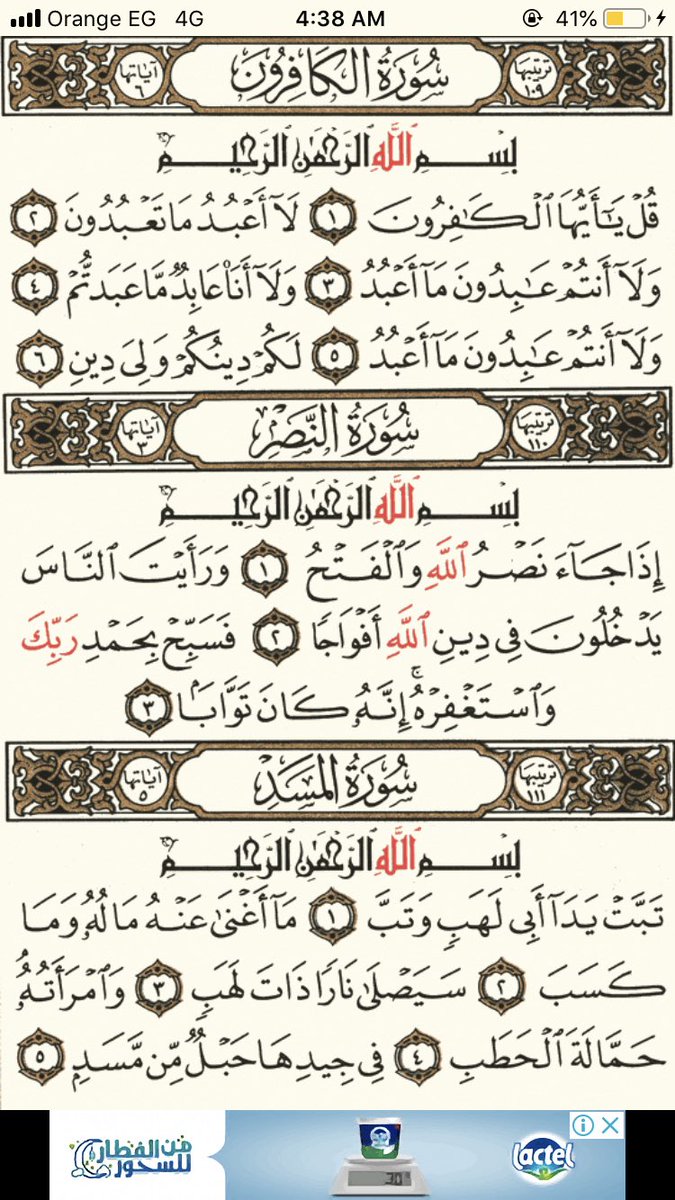 Orange EG 4G 4:38 AM 41%
ترتيبها ١٠٩ سُورَةُ الكَافِرُونَ آياتها ٦
بِسْمِ ٱللَّهِ ٱلرَّحْمَٰنِ ٱلرَّحِيمِ
قُلْ يَٰٓأَيُّهَا ٱلْكَٰفِرُونَ ١ لَآ أَعْبُدُ مَا تَعْبُدُونَ ٢
وَلَآ أَنتُمْ عَٰبِدُونَ مَآ أَعْبُدُ ٣ وَلَآ أَنَا۠ عَابِدٌ مَّا عَبَدتُّمْ ٤
وَلَآ أَنتُمْ عَٰبِدُونَ مَآ أَعْبُدُ ٥ لَكُمْ دِينُكُمْ وَلِىَ دِينِ ٦
ترتيبها ١١٠ سُورَةُ النَّصْرِ آياتها ٣
بِسْمِ ٱللَّهِ ٱلرَّحْمَٰنِ ٱلرَّحِيمِ
إِذَا جَآءَ نَصْرُ ٱللَّهِ وَٱلْفَتْحُ ١ وَرَأَيْتَ ٱلنَّاسَ
يَدْخُلُونَ فِى دِينِ ٱللَّهِ أَفْوَاجًا ٢ فَسَبِّحْ بِحَمْدِ رَبِّكَ
وَٱسْتَغْفِرْهُ ۚ إِنَّهُۥ كَانَ تَوَّابًۢا ٣
ترتيبها ١١١ سُورَةُ المَسَدِ آياتها ٥
بِسْمِ ٱللَّهِ ٱلرَّحْمَٰنِ ٱلرَّحِيمِ
تَبَّتْ يَدَآ أَبِى لَهَبٍ وَتَبَّ ١ مَآ أَغْنَىٰ عَنْهُ مَالُهُۥ وَمَا
كَسَبَ ٢ سَيَصْلَىٰ نَارًا ذَاتَ لَهَبٍ ٣ وَٱمْرَأَتُهُۥ
حَمَّالَةَ ٱلْحَطَبِ ٤ فِى جِيدِهَا حَبْلٌ مِّن مَّسَدٍ ٥
من الفطار
للسحور
30
lactel